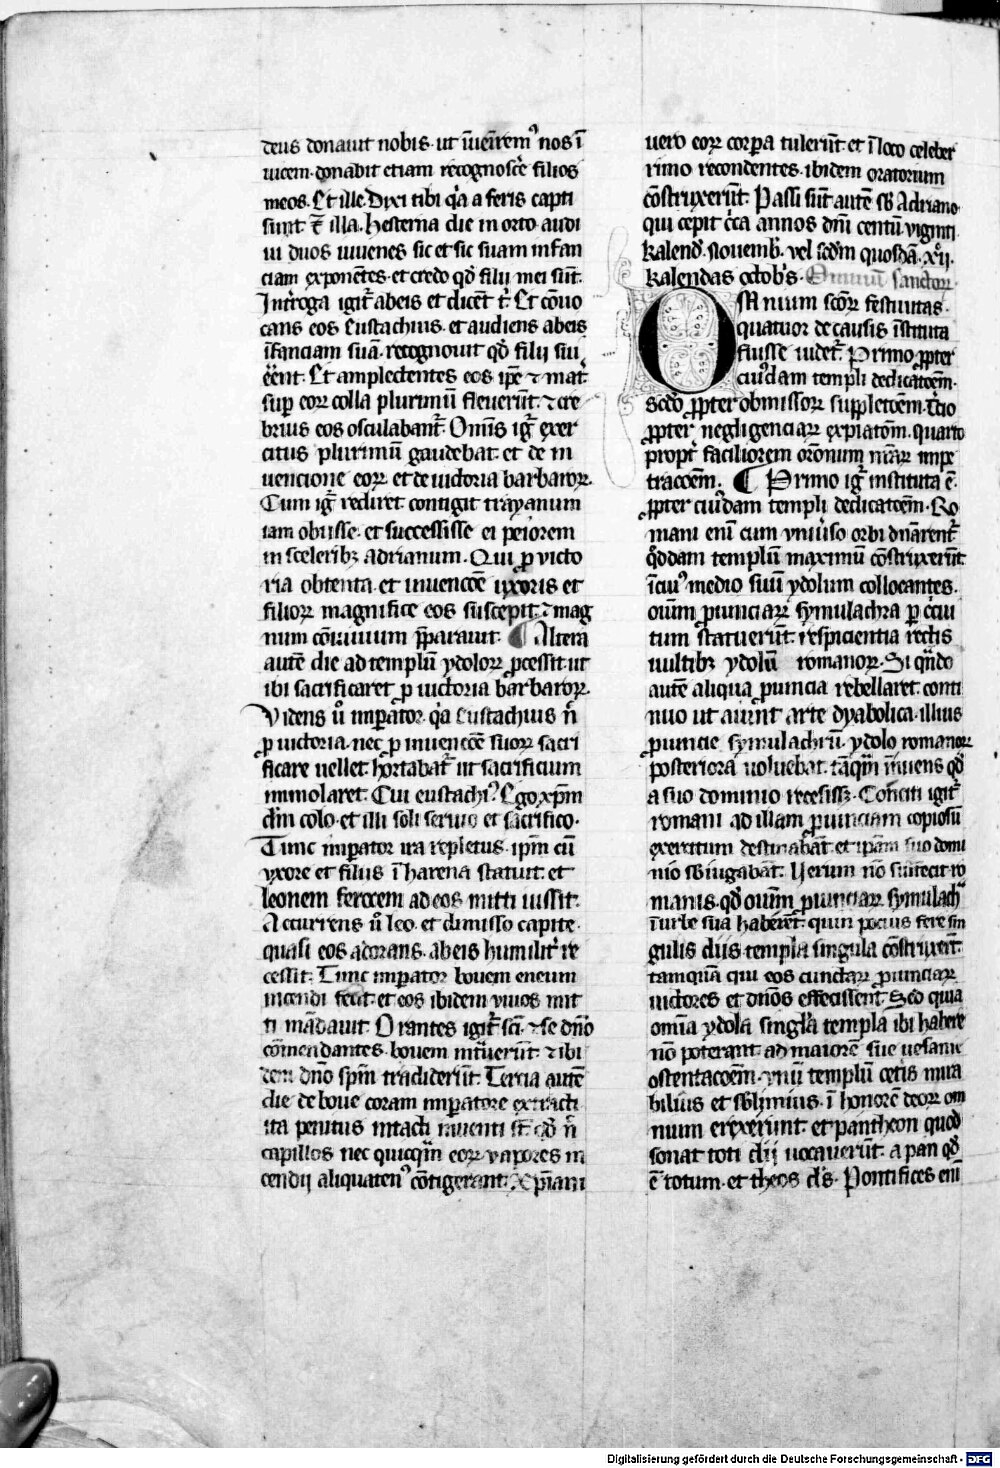 deus donauit nobis. ut īueīrem᾿ nos ī
uicem. donabit etiam recognosc̄e filios
meos. Et ille. Dixi tibi qꝛa a feris capti
sunt. Et̄ illa. Hesterna die in orto audi
ui duos iuuenes sic et sic suam infan
ciam exponētes. et credo qd̄ filij mei sūt.
Int̄roga igit᷑ ab eis et dicēt t᷑. Et cōuo
cans eos Eustachius. et audiens ab eis
īfanciam suā. recognouit qd̄ filij sui
ēēnt. Et amplectentes eos ip̄e ⁊ mat᷑
suꝑ eoꝝ colla plurimū fleuerūt. ⁊ cre
brius eos osculabant᷑. Omnis ig᷑ exer
citus plurimū gaudebat. et de in
uencione eoꝝ. et de uictoria barbaroꝝ.
Cum ig᷑ rediret. contigit trayanum
iam obiisse. et successisse ei peiorem
in sceleribꝫ Adrianum. Qui ꝓ victo
ria obtenta. et inuencōe uxoris et
filioꝝ magnifice eos suscepit. ⁊ mag
num cōuiuium p̄parauit. ¶ Altera
autē die ad templū ydoloꝝ ꝓcessit. ut
ibi sacrificaret ꝓ uictoria barbaroꝝ.
Videns ū imꝑator. qꝛa Eustachius n̄
ꝓ uictoria. nec ꝓ inuencōe suoꝝ sacri
ficare uellet. hortabat᷑ ut sacrificium
immolaret. Cui eustachi᾿. Ego xp̄m
dm̄ colo. et illi soli seruio et sacrifico.
Tunc imꝑator ira repletus. ip̄m cū
vxore et filiis ī harena statuit. et
leonem ferocem ad eos mitti iussit.
Accurrens ū leo. et dimisso capite.
quasi eos adorans. ab eis humilit᷑ re
cessit. Tunc imꝑator bouem eneum
incendi fecit. et eos ibidem viuos mit
ti mādauit. Orantes igit᷑ sc̄i. ⁊ se dn̄o
cōmendantes. bouem int᷑uerūt. ⁊ ibi
dem dn̄o sp̄m tradiderūt. Tercia autē
die de boue coram imꝑatore extracti
ita penitus intacti inuenti sūt. qd̄ n̄
capillos nec quicqͣm eoꝝ vapores in
cendij aliquaten᾿ cōtigerant. Xp̄iani
vero eoꝝ corꝑa tulerūt. et ī loco celeber
rimo recondentes. ibidem oratorium
cōstruxerūt. Passi sūt autē sb̄ Adriano
qui cepit cͥca annos dn̄i centū viginti
kalend᷑. Nouemb᷑. vel sc̄dm quosdā. xij.
kalendas octob᷑s. Omniū sanctoꝝ.
OMnium sc̄oꝝ festiuitas.
quatuor de causis īstituta
fuisse uidet᷑. Primo ꝓpter
cui᾿dam templi dedicatōem.
Sc̄do ꝓpter obmissoꝝ suppletōem. t᷑cio
ꝓpter negligenciaꝝ expiatōm. quarto
propt᷑ faciliorem orōnum nr̄aꝝ impe
tracōem. ¶ Primo ig᷑ instituta ē.
ꝓpter cui᾿dam templi dedicatōem. Ro
mani enī cum vniu᷑so orbi dn̄arent᷑
qͦddam templū maximū cōstruxerūt.
ī cui᾿ medio suū ydolum collocantes.
oīūm ꝓuinciaꝝ symulachra ꝑ cͥcui
tum statuerūt. respicientia rectis
uultibꝫ ydolū romanoꝝ. Si qn̄do
autē aliqua ꝓuincia rebellaret. conti
nuo ut aiunt arte dyabolica. illius
ꝓuincie symulachrū. ydolo romanoꝝ
posteriora uoluebat. tāqͣm īnuens qd̄
a suo dominio recessissꝫ. Conciti igit᷑
romani ad illam ꝓuinciam copiosū
exercitum destinabāt. et ip̄am suo domi
nio sb̄iugabāt. Uerum nō suffecit ro
manis. qd̄ oīūm ꝓuinciaꝝ symulach᷑
ī urbe sua haberēt. quin pocius fere sin
gulis diis templa singula cōstruxer̄t.
tamquā qui eos cunctaꝝ ꝓuinciaꝝ
uictores et dn̄os effecissent. Sed quia
om̄ia ydola singl̄a templa ibi habere
nō poterant. ad maiorē sue uesanie
ostentacōem. vnū templū cet᷑is mira
bilius et sb̄limius. ī honorē deoꝝ om
nium erexerunt. et pantheon quod
sonat toti dij uocauerūt. a pan qd̄
ē totum. et theos de᾿s. Pontifices enī
Digitalisierung gefördert durch die Deutsche Forschungsgemeinschaft - DFG